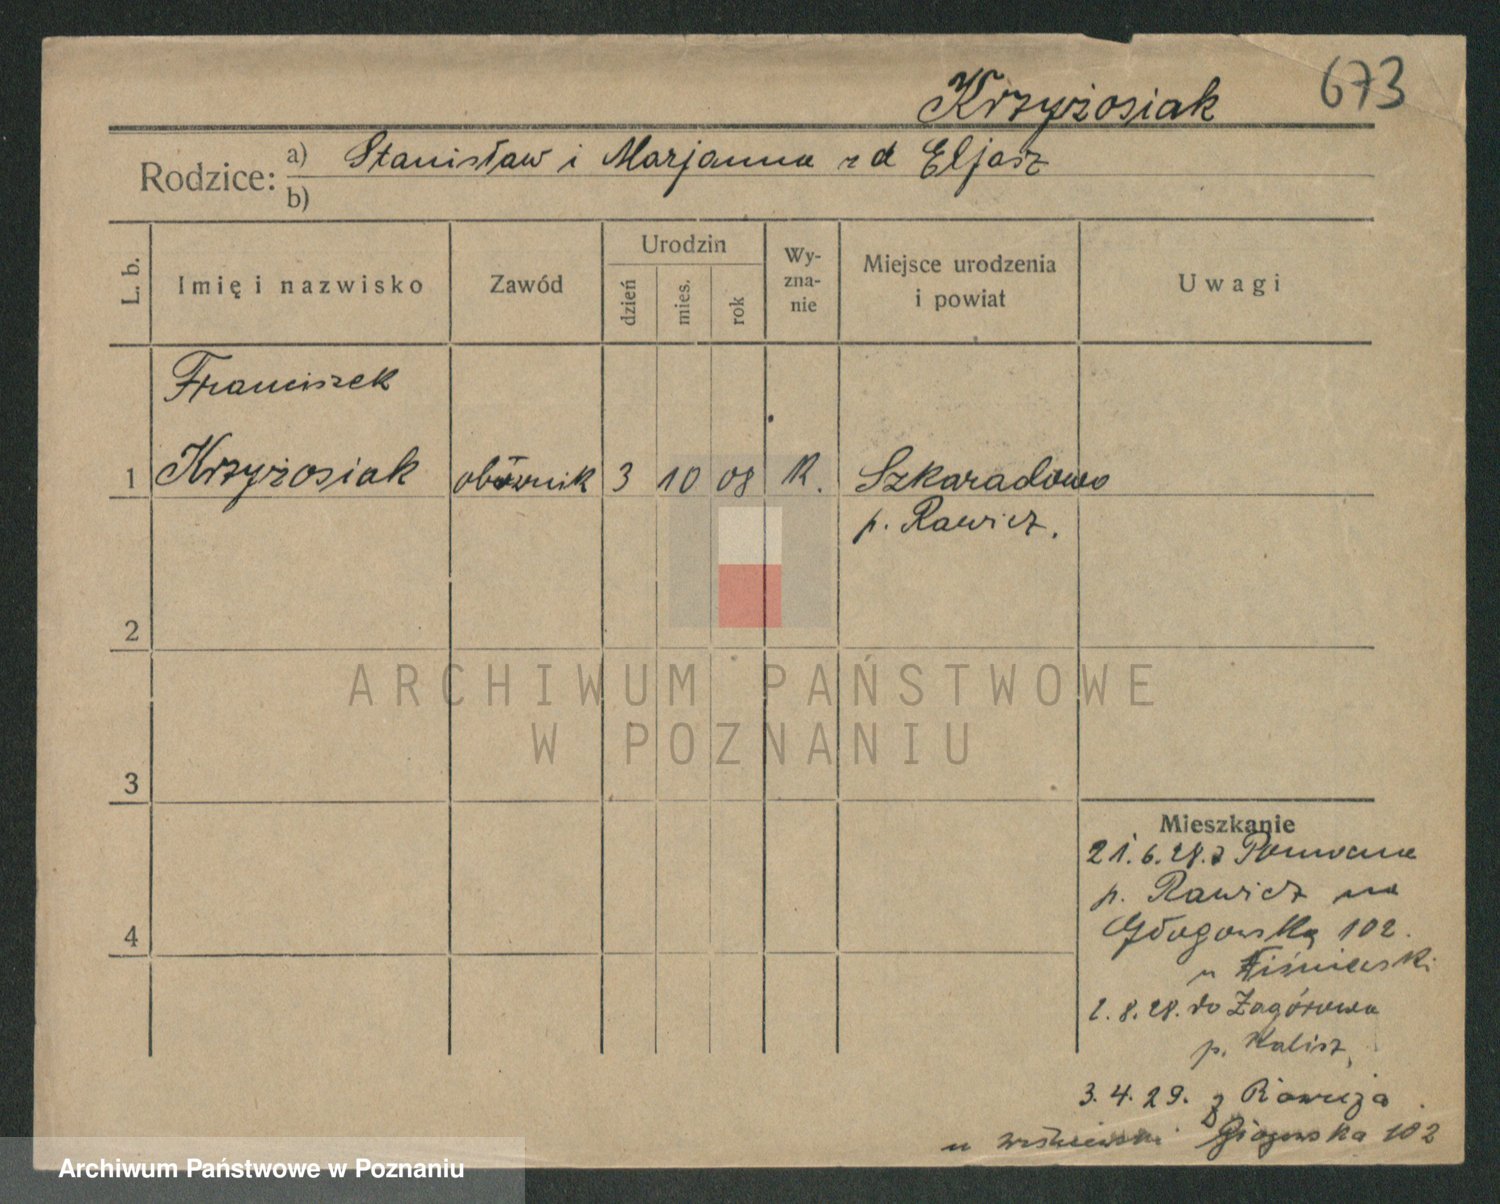 673
Krzyżosiak
Rodzice: a) Stanisław i Marjanna z d Eljasz
b)
L. b.
Imię i nazwisko
Zawód
Urodzin
dzień
mies.
rok
Wy-
zna-
nie
Miejsce urodzenia
i powiat
Uwagi
Franciszek
1 Krzyżosiak obórnik 3 10 08 K. Szkaradowo
p. Rawicz.
2
3
4
Mieszkanie
21.6.28. z
p. Rawicz na
Głogowską 102.
u
2.8.28. do Zagórowa
p. Kalisz,
3.4.29. z Rawicza
u Wiśniewski Głogowska 102
ARCHIWUM PAŃSTWOWE
W POZNANIU
Archiwum Państwowe w Poznaniu